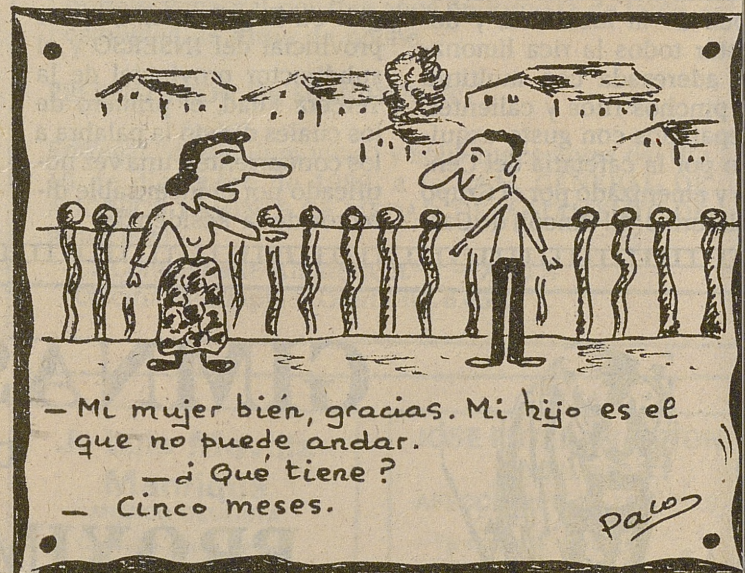 — Mi mujer bién, gracias. Mi hijo es el
que no puede andar.
— ¿ Qué tiene ?
— Cinco meses.
Paco